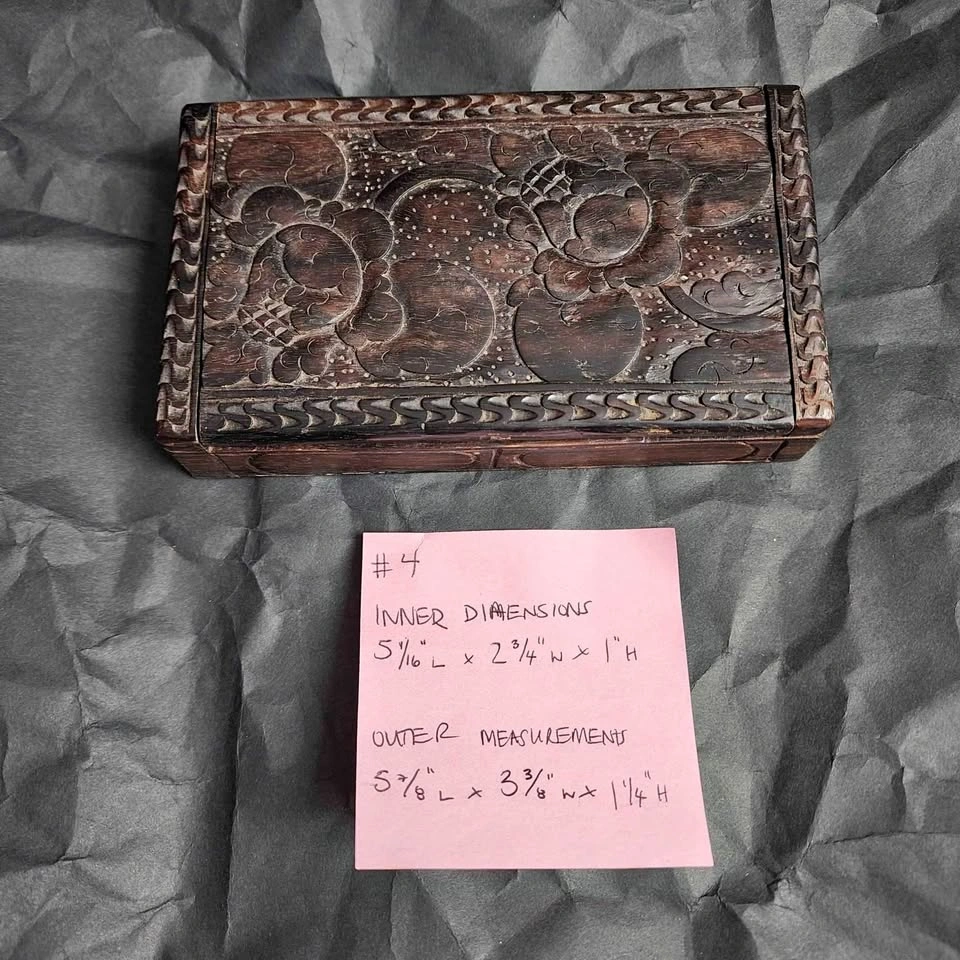 #4
INNER DIMENSIONS
5 1/16" L x 2 3/4" W x 1" H
OUTER MEASUREMENTS
5 7/8" L x 3 3/8" W x 1 1/4" H